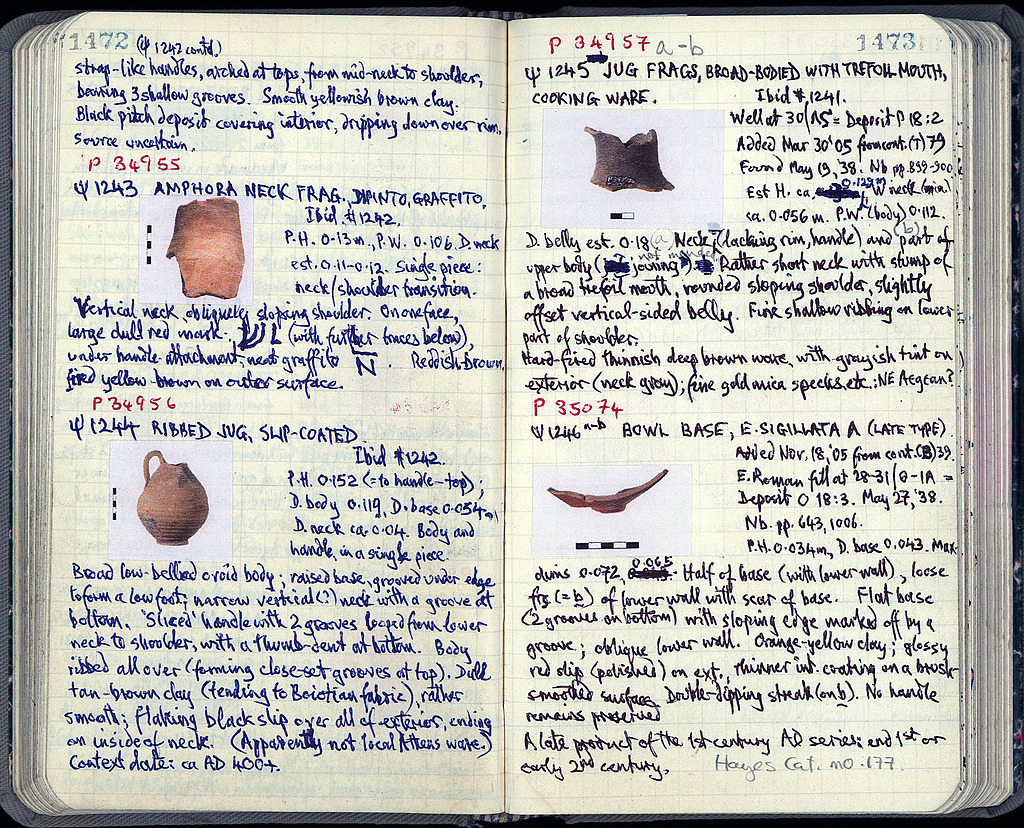 1472 (ψ 1242 contd.)
strap-like handles, arched at tops, from mid-neck to shoulder,
bearing 3 shallow grooves. Smooth yellowish brown clay.
Black pitch deposit covering interior, dripping down over rim,
source uncertain.
P 34955
ψ 1243 AMPHORA NECK FRAG., DIPINTO, GRAFFITO.
Ibid. #1242.
P.H. 0.13m., P.W. 0.106. D. neck
est. 0.11-0.12. Single piece:
neck/shoulder transition.
Vertical neck, obliquely sloping shoulder. On one face,
large dull red mark. (with further traces below),
under handle-attachment, neat graffito N. Reddish-brown,
fired yellow-brown on outer surface.
P 34956
ψ 1244 RIBBED JUG, SLIP-COATED.
Ibid #1242.
P.H. 0.152 (= to handle-top);
D. body 0.119, D. base 0.054.
D. neck ca. 0.04. Body and
handle in a single piece.
Broad low-bellied ovoid body; raised base, grooved under edge
to form a low foot; narrow vertical(?) neck with a groove at
bottom. 'Sliced' handle with 2 grooves looped from lower
neck to shoulder, with a thumb-dent at bottom. Body
ribbed all over (forming close-set grooves at top). Dull
tan-brown clay (tending to Boiotian fabric), rather
smooth; flaking black slip over all of exterior, ending
on inside of neck. (Apparently not local Athens ware.)
Context date: ca AD 400+.
P 34957 a-b
1473
ψ 1245 JUG FRAGS, BROAD-BODIED WITH TREFOIL MOUTH,
COOKING WARE. Ibid #1241.
Well at 30/ΛΣ = Deposit P 18:2
Added Mar 30 '05 from cont. (T) 79
Found May 19, '38. Nb pp. 899-900.
Est H. ca 0.129m W neck (min.)
ca. 0.056 m. P.W. (body) 0.112.
D. belly est. 0.18. (a) Neck (lacking rim, handle) and (b) part of
upper body (joining) not mended. Rather short neck with stump of
a broad trefoil mouth, rounded sloping shoulder, slightly
offset vertical-sided belly. Fine shallow ribbing on lower
part of shoulder.
Hard-fired thinnish deep brown ware, with grayish tint on
exterior (neck gray); fine gold mica specks, etc.: NE Aegean?
P 35074
ψ 1246 a-b BOWL BASE, E. SIGILLATA A (LATE TYPE)
Added Nov. 18, '05 from cont. (B) 39.
E. Roman fill at 28-31/Θ-ΙΑ =
Deposit O 18:3. May 27, '38.
Nb. pp. 643, 1006.
P.H. 0.034m, D. base 0.043. Max
dims 0.072, 0.065. Half of base (with lower wall), loose
frg (= b) of lower wall with scar of base. Flat base
(2 grooves on bottom) with sloping edge marked off by a
groove; oblique lower wall. Orange-yellow clay; glossy
red slip (polished) on ext., thinner int. coating on a brush-
smoothed surface. Double-dipping streak (on b). No handle
remains preserved
A late product of the 1st century AD series: end 1st or
early 2nd century. Hayes Cat. no. 177.